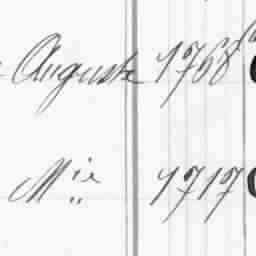 Auguste 1768
Mie 1717